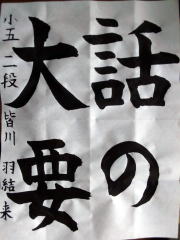 話の
大要
小五 二段 皆川 羽結来